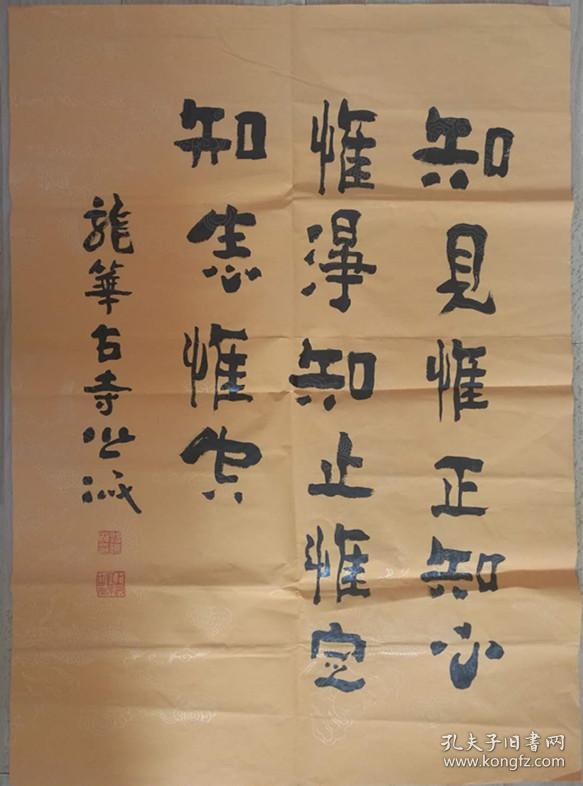 知見惟正知心
惟淨知止惟定
知惟
龍華古寺照誠
孔夫子旧书网
www.kongfz.com